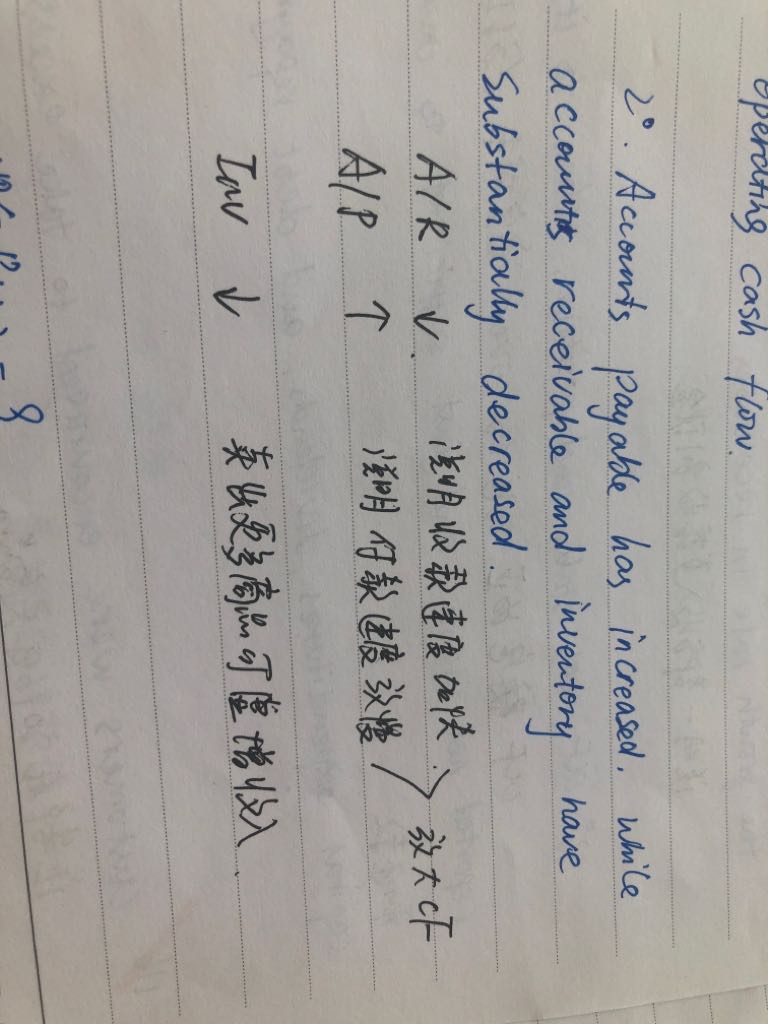 operating cash flow.
2°. Accounts payable has increased, while
accounts receivable and inventory have
Substantially decreased.
A/R ↓. 说明收款速度加快.
A/P ↑ 说明付款速度放慢
放大CF
Inv ↓ 卖出更多商品可虚增收入.